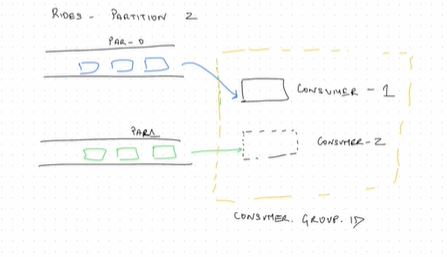 RIDES - PARTITION 2
PAR-0
CONSUMER - 1
PAR1
CONSUMER-2
CONSUMER. GROUP. ID